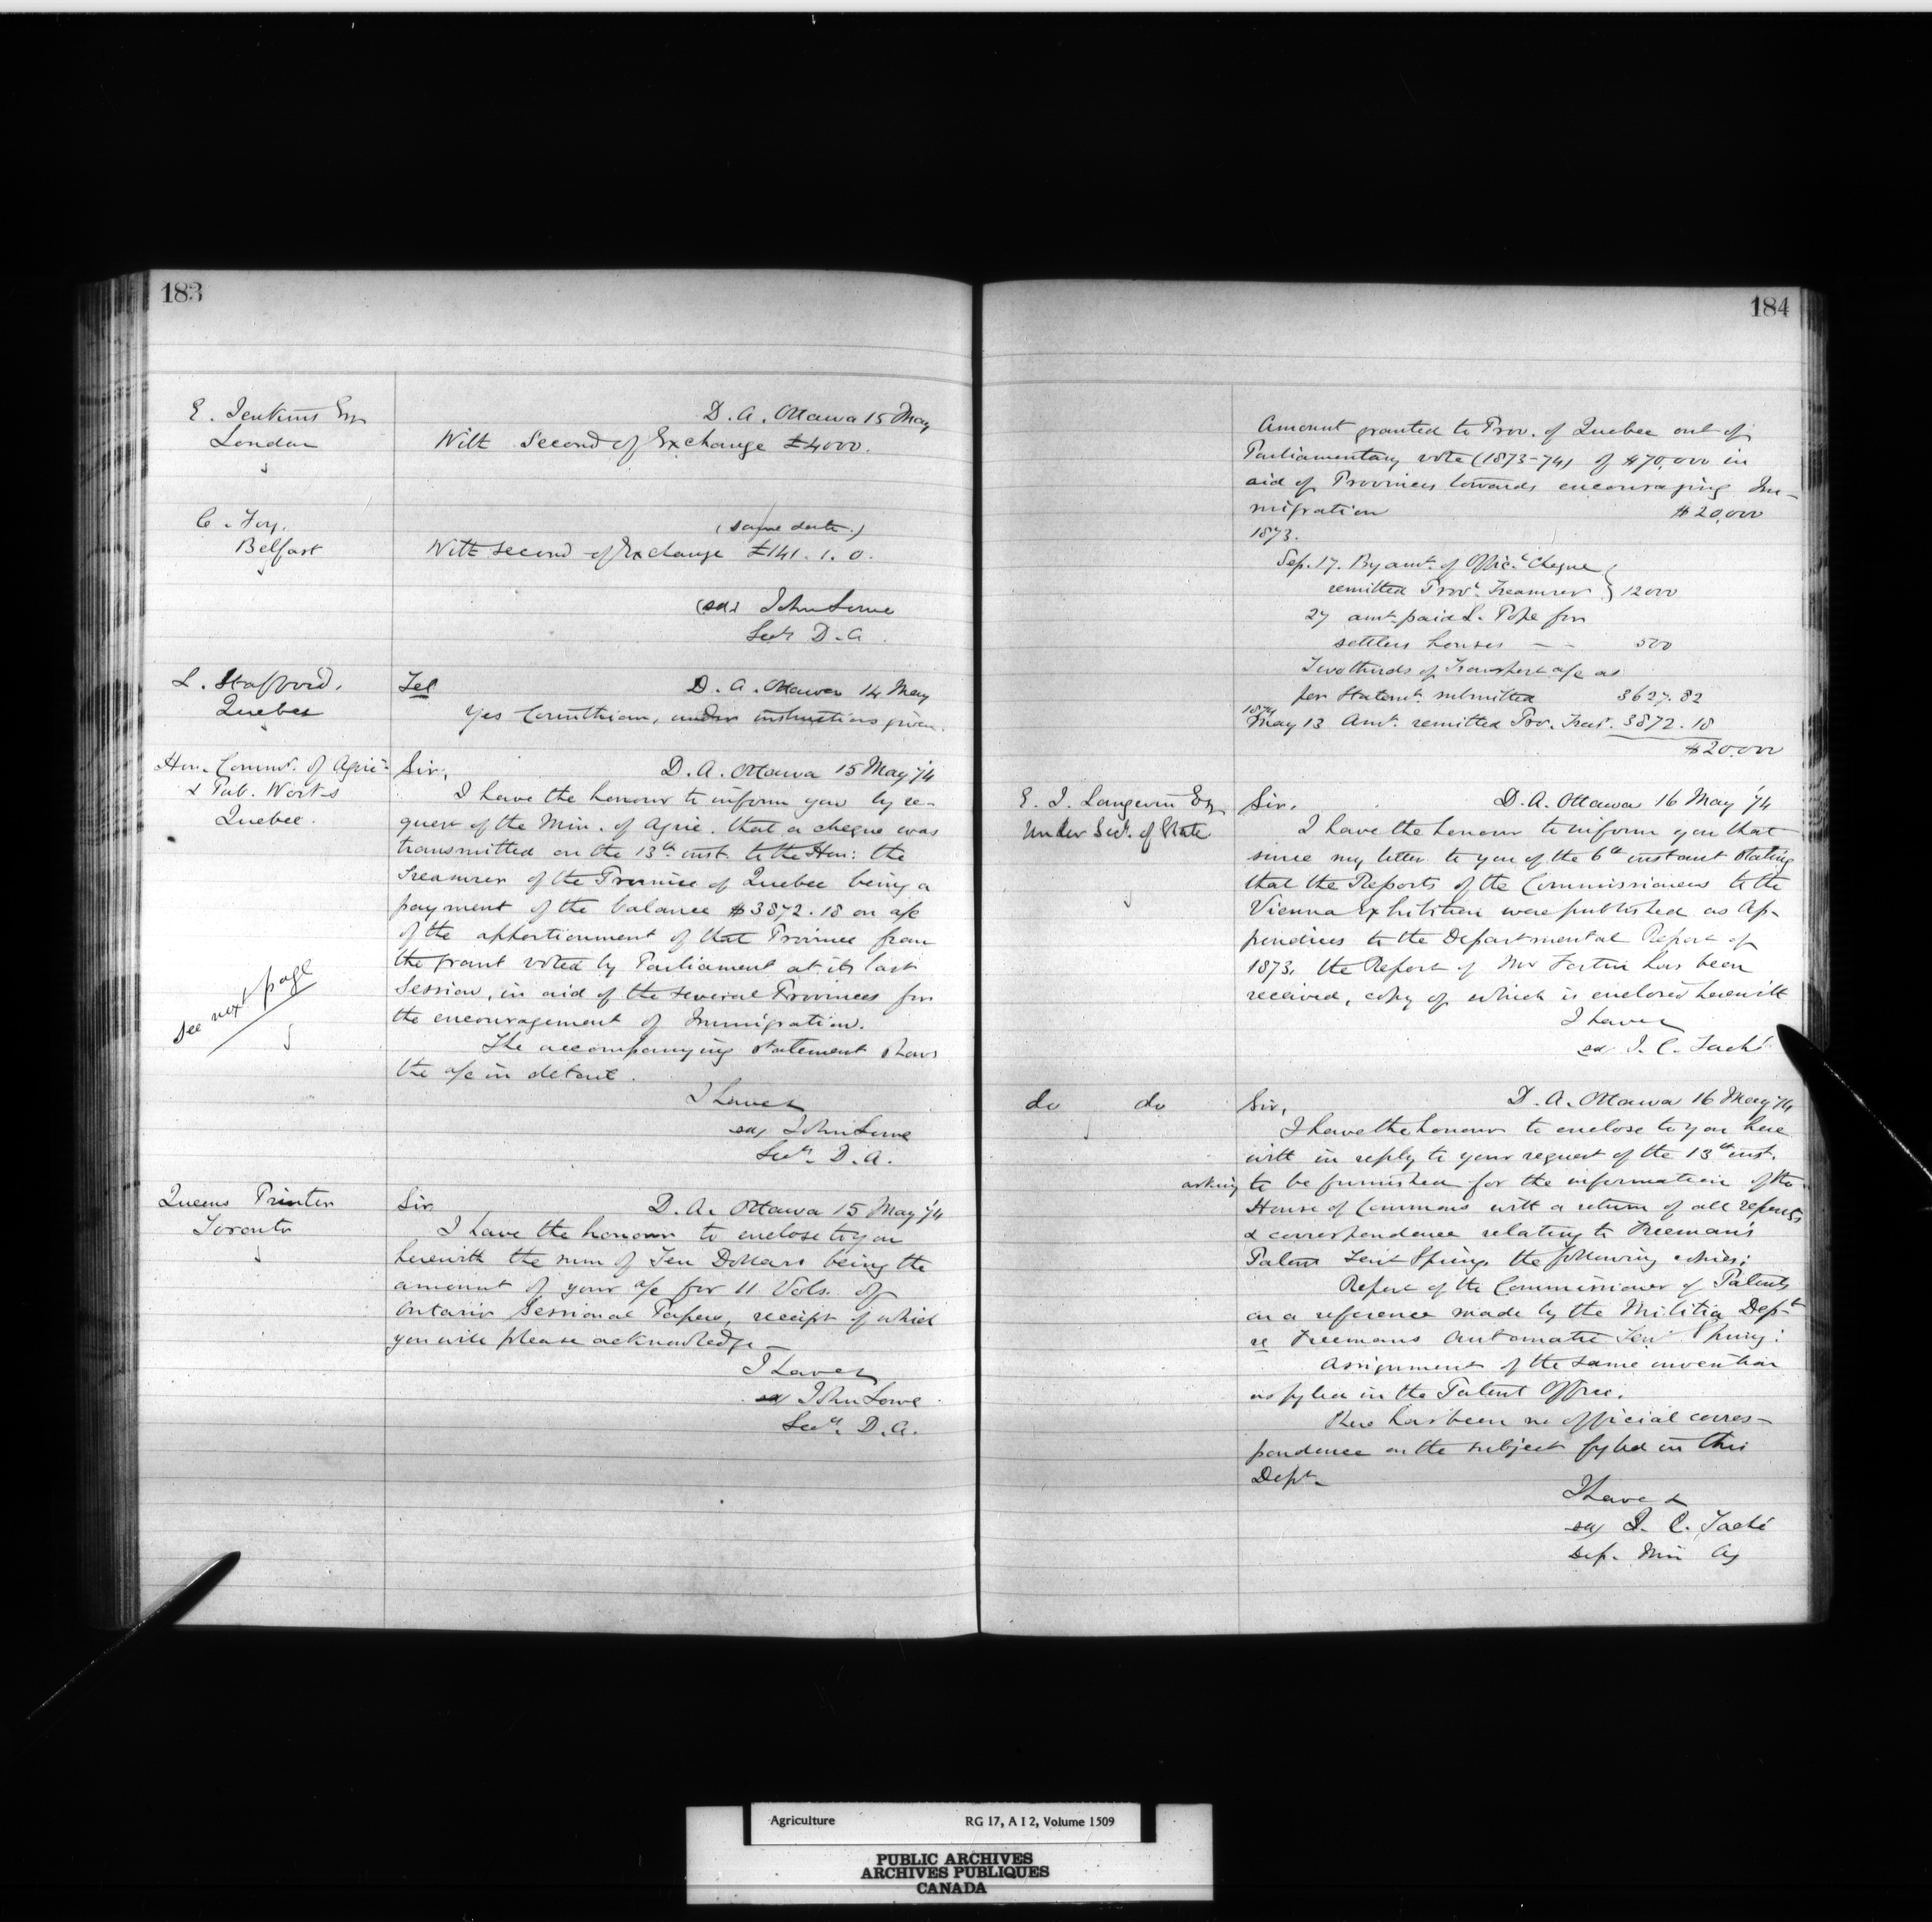 183
E. Jenkins Esq
London
D. A. Ottawa 15 May
With Second of Exchange £4000.
C. Foy.
Belfast
(same date.)
With second of Exchange £141. 1. 0.
(sd) John Lowe
Secy D. A.
L. Stafford,
Quebec
Tel D. A. Ottawa 14 May
Yes Corinthian, under instructions given.
Hon. Commr. of Agric.
& Pub. Works
Quebec.
Sir, D. A. Ottawa 15 May '74
I have the honour to inform you by re-
quest of the Min. of Agric. that a cheque was
transmitted on the 13th inst. to the Hon: the
Treasurer of the Province of Quebec being a
payment of the balance $3872.18 on a/c
of the apportionment of that Province from
the grant voted by Parliament at its last
Session, in aid of the several Provinces for
the encouragement of Immigration.
The accompanying statement shows
the a/c in detail.
see next page
I have &
sd/ John Lowe
Secy. D. A.
Queens Printer
Toronto
Sir D. A. Ottawa 15 May '74
I have the honour to enclose to you
herewith the sum of Ten Dollars being the
amount of your a/c for 11 Vols. of
Ontario Sessional Papers, receipt of which
you will please acknowledge
I have &
sd John Lowe
Secy. D. A.
184
Amount granted to Prov. of Quebec out of
Parliamentary vote (1873-74) of $70,000 in
aid of Provinces towards encouraging Im-
migration $20,000
1873.
Sep. 17. By amt. of Offic. Cheque
remitted Prov. Treasurer } 12000
27 amt. paid L. Pope for
settlers houses — — 500
Two thirds of Transport a/c as
per Statemt. submitted 3627.82
1874
May 13 Amt. remitted Prov. Treas. 3872.18
$20,000
E. J. Langevin Esq
Under Sec. of State
Sir. D. A. Ottawa 16 May '74
I have the honour to inform you that
since my letter to you of the 6th instant stating
that the Reports of the Commissioners to the
Vienna Exhibition were published as Ap-
pendices to the Departmental Report of
1873, the Report of Mr Fortin has been
received, copy of which is enclosed herewith
I have &
sd J. C. Taché
do do
Sir, D. A. Ottawa 16 May '74
I have the honour to enclose to you here
with in reply to your request of the 13th inst.
asking to be furnished for the information of the
House of Commons with a return of all reports
& correspondence relating to Freeman's
Patent Tent Spring the following copies:
Report of the Commissioner of Patents
on a reference made by the Militia Dept
re Freemans Automatic Tent Spring:
Assignment of the same invention
as fyled in the Patent Office.
There has been no official corres-
pondence on the subject fyled in this
Dept.
I have &
sd/ J. C. Taché
Dep. Min Ag
Agriculture RG 17, A I 2, Volume 1509
PUBLIC ARCHIVES
ARCHIVES PUBLIQUES
CANADA